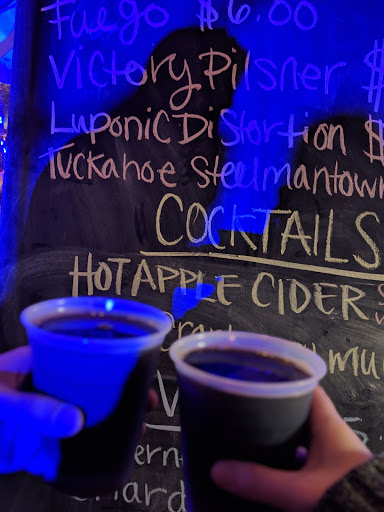 Fuego $6.00
Victory Pilsner $
Luponic Distortion $
Tuckahoe Steelmantown
COCKTAILS
HOT APPLE CIDER